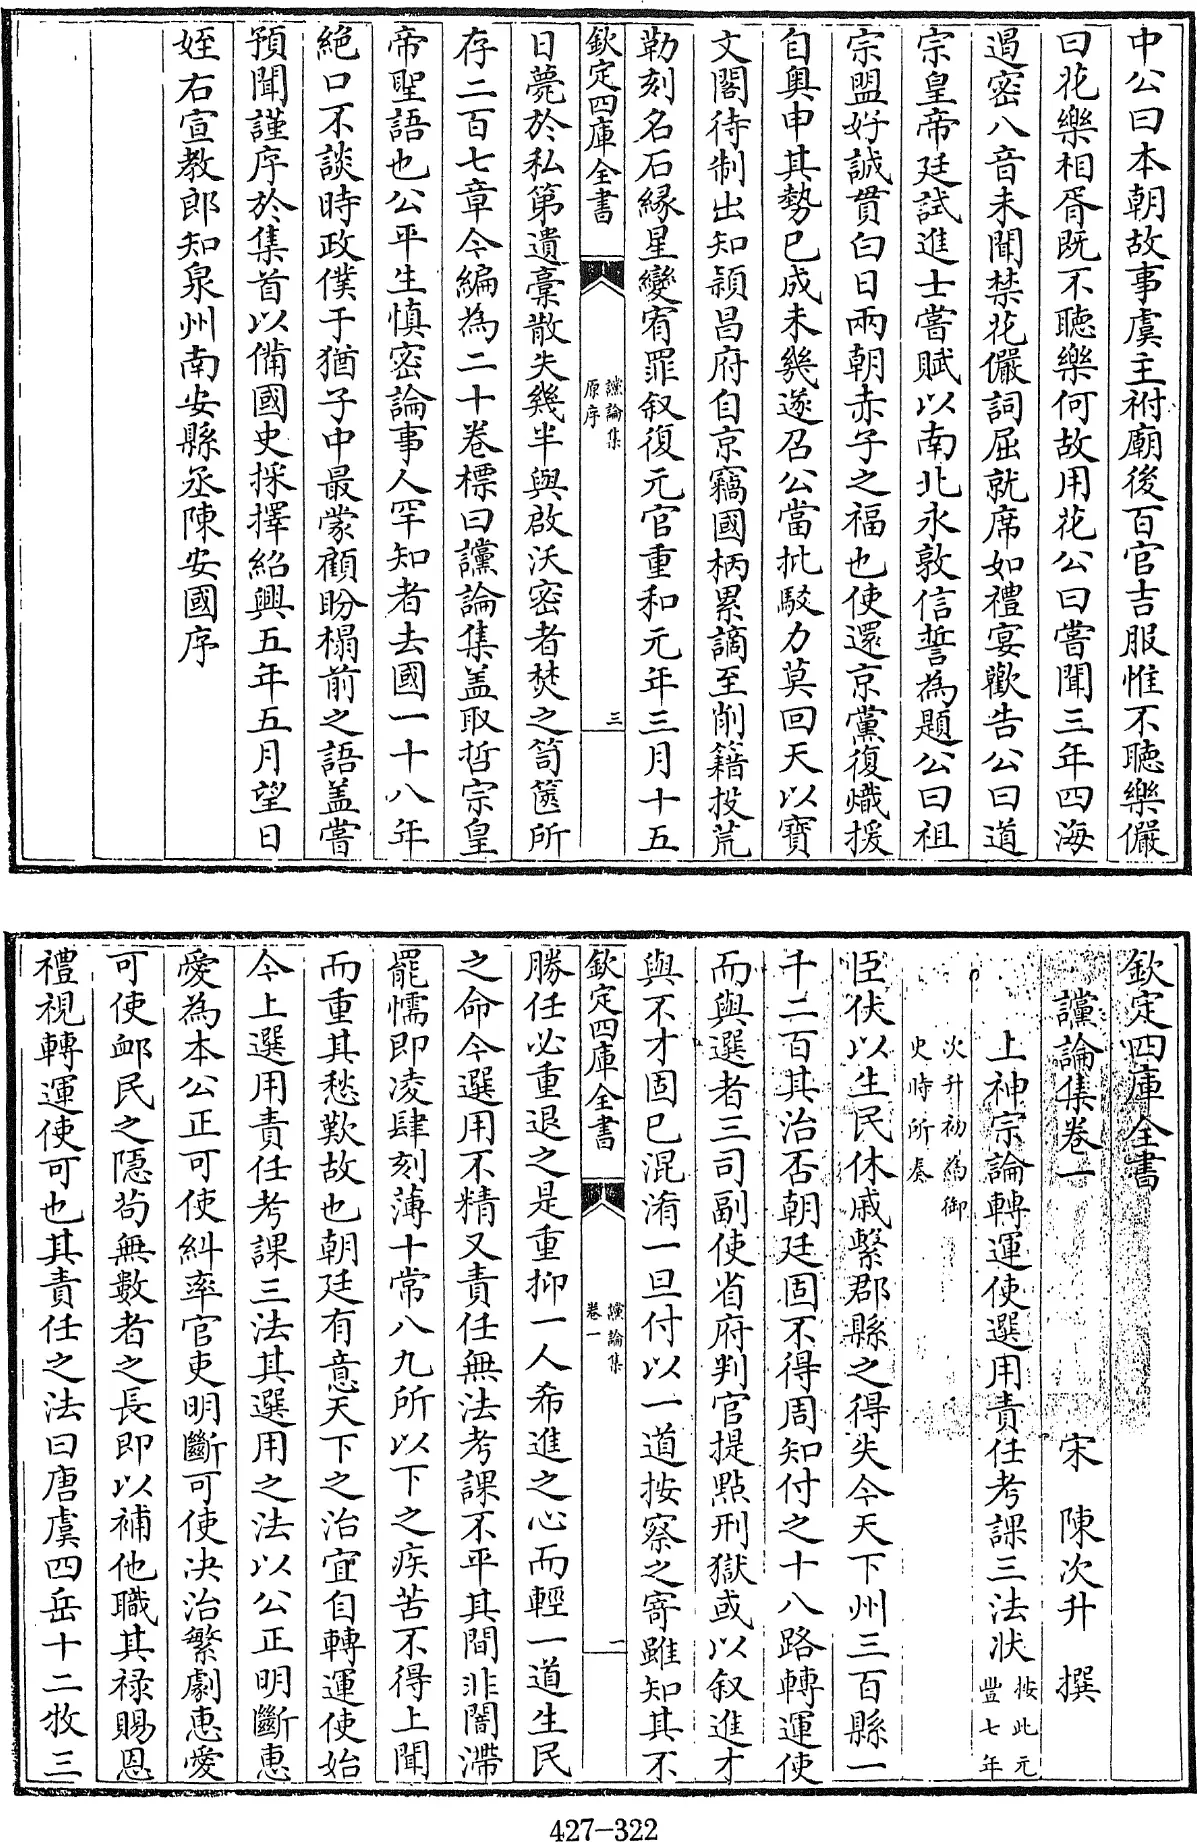 中公曰本朝故事虞主祔廟後百官吉服惟不聽樂儼
曰花樂相胥既不聽樂何故用花公曰嘗聞三年四海
遏密八音未聞禁花儼詞屈就席如禮宴歡告公曰道
宗皇帝廷試進士嘗賦以南北永敦信誓為題公曰祖
宗盟好誠貫白日兩朝赤子之福也使還京黨復熾援
自奥申其勢已成未幾遂召公當批駮力莫回天以寶
文閣待制出知潁昌府自京竊國柄累謫至削籍投荒
勒刻名石縁星變宥罪叙復元官重和元年三月十五
欽定四庫全書
讜論集
原序
三
日薨於私第遺藁散失幾半與啟沃密者焚之笥篋所
存二百七章今編為二十卷標曰讜論集盖取哲宗皇
帝聖語也公平生慎密論事人罕知者去國一十八年
絶口不談時政僕于猶子中最蒙顧盼榻前之語盖嘗
預聞謹序於集首以備國史採擇紹興五年五月望日
姪右宣教郎知泉州南安縣丞陳安國序
欽定四庫全書
讜論集卷一
宋 陳次升 撰
上神宗論轉運使選用責任考課三法狀
按此元
豐七年
次升初為御
史時所奏
臣伏以生民休戚繫郡縣之得失今天下州三百縣一
千二百其治否朝廷固不得周知付之十八路轉運使
而與選者三司副使省府判官提點刑獄或以叙進才
與不才固已混淆一旦付以一道按察之寄雖知其不
欽定四庫全書
讜論集
卷一
二
勝任必重退之是重抑一人希進之心而輕一道生民
之命今選用不精又責任無法考課不平其間非闇滯
罷懦即凌肆刻薄十常八九所以下之疾苦不得上聞
而重其愁歎故也朝廷有意天下之治宜自轉運使始
今上選用責任考課三法其選用之法以公正明斷恵
愛為本公正可使糾率官吏明斷可使決治繁劇恵愛
可使邺民之隱茍無數者之長即以補他職其禄賜恩
禮視轉運使可也其責任之法曰唐虞四岳十二牧三
427-322